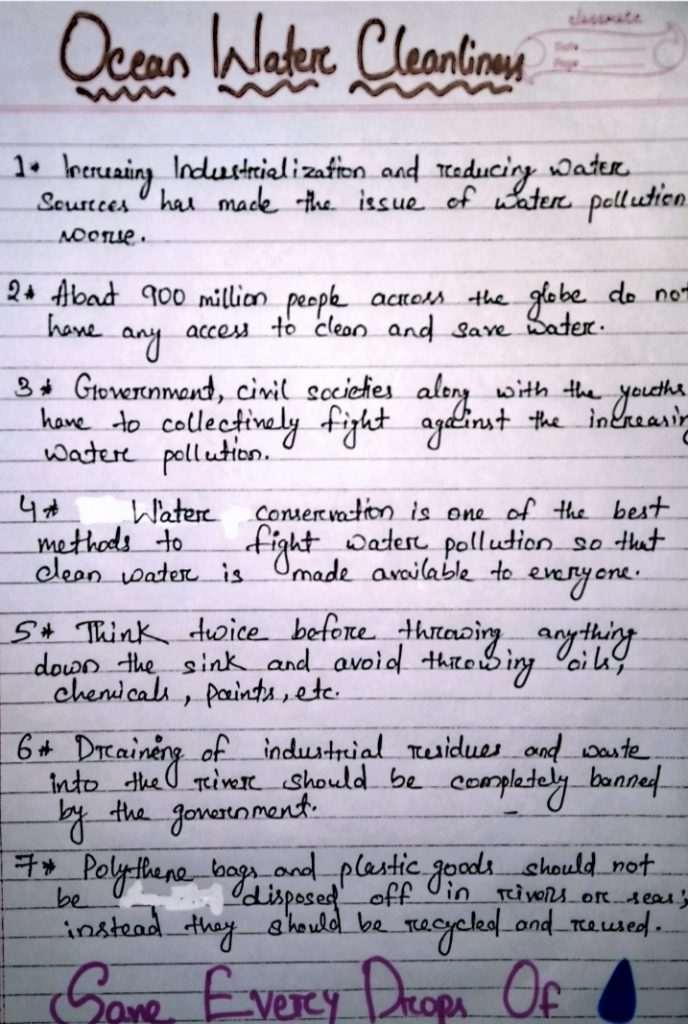 classmate
Date
Page
Ocean Water Cleanliness
1* Increasing Industrialization and reducing water
Sources has made the issue of water pollution
worse.
2* About 900 million people across the globe do not
have any access to clean and save water.
3* Government, civil societies along with the youths
have to collectively fight against the increasing
water pollution.
4* Water conservation is one of the best
methods to fight water pollution so that
clean water is made available to everyone.
5* Think twice before throwing anything
down the sink and avoid throwing oils,
chemicals, paints, etc.
6* Draining of industrial residues and waste
into the river should be completely banned
by the government.
7* Polythene bags and plastic goods should not
be disposed off in rivers or seas;
instead they should be recycled and reused.
Save Every Drops Of